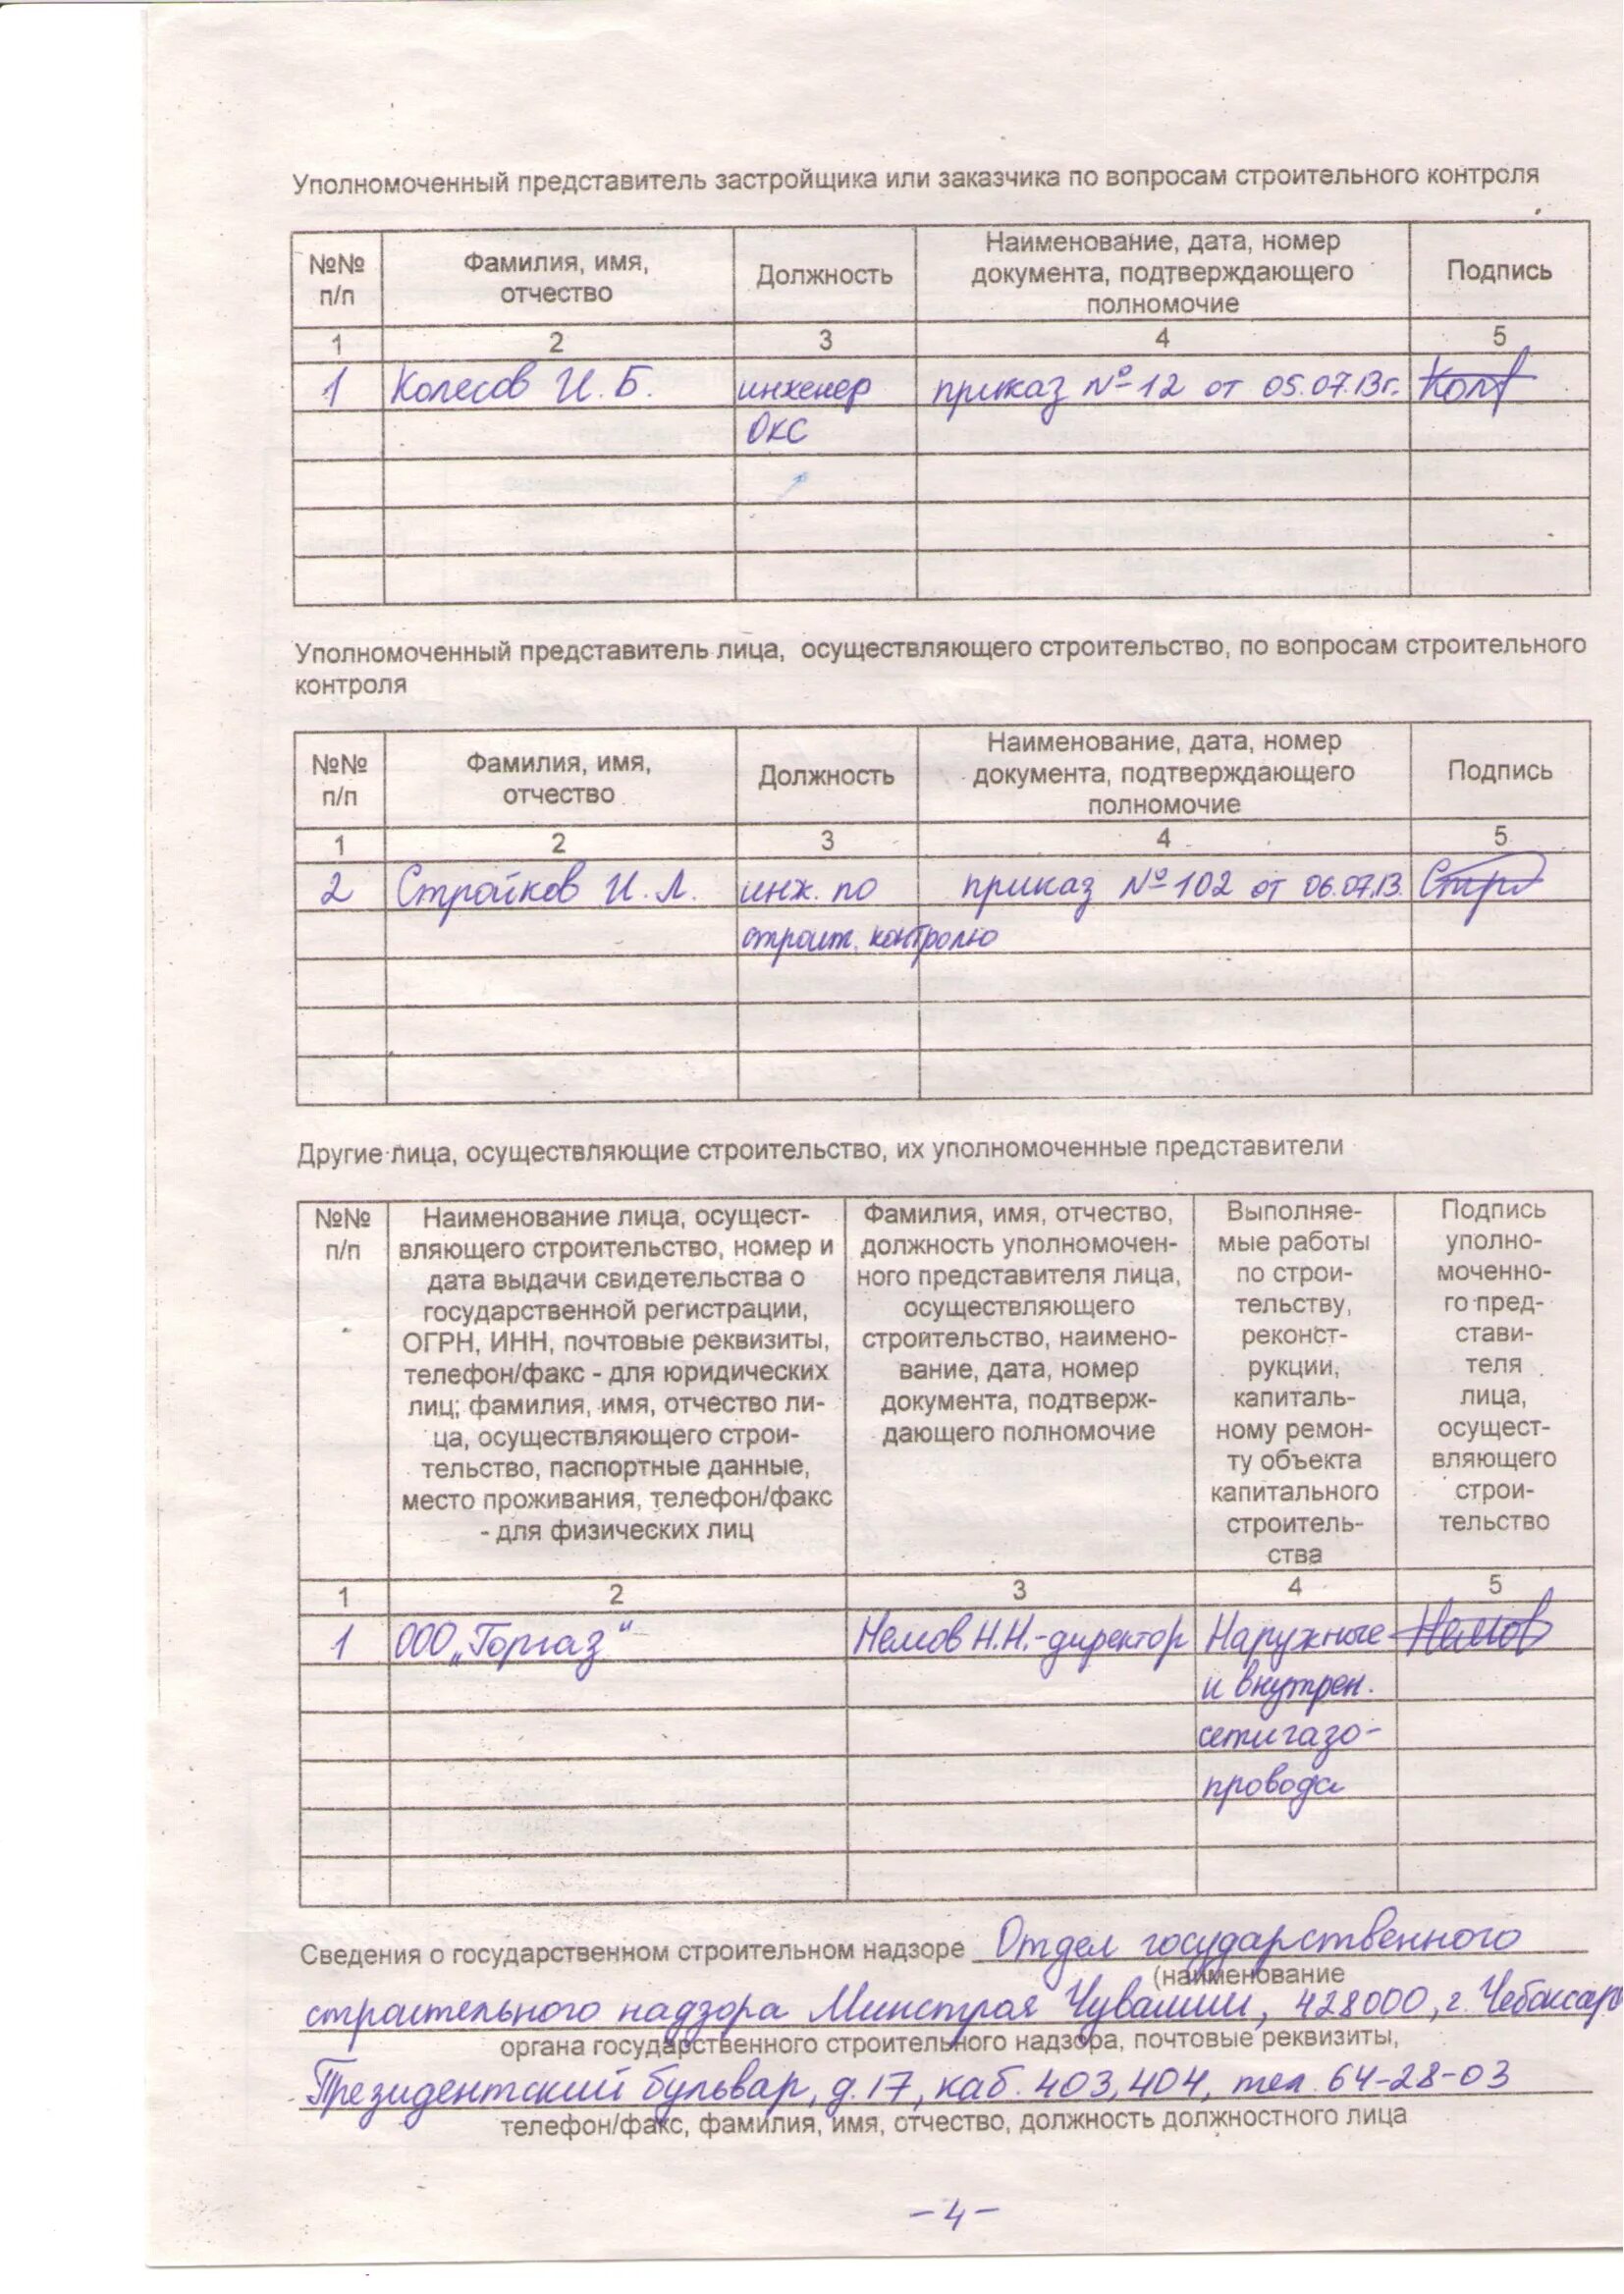 Уполномоченный представитель застройщика или заказчика по вопросам строительного контроля
№№ п/п
Фамилия, имя, отчество
Должность
Наименование, дата, номер документа, подтверждающего полномочие
Подпись
1 2 3 4 5
1 Колесов И. Б. инженер приказ № 12 от 05.07.13г. Кол
ОКС
Уполномоченный представитель лица, осуществляющего строительство, по вопросам строительного
контроля
№№ п/п
Фамилия, имя, отчество
Должность
Наименование, дата, номер документа, подтверждающего полномочие
Подпись
1 2 3 4 5
2 Стройков И. Л. инж. по приказ № 102 от 06.07.13. Стр
строит. контролю
Другие лица, осуществляющие строительство, их уполномоченные представители
№№
п/п
Наименование лица, осущест-
вляющего строительство, номер и
дата выдачи свидетельства о
государственной регистрации,
ОГРН, ИНН, почтовые реквизиты,
телефон/факс - для юридических
лиц; фамилия, имя, отчество ли-
ца, осуществляющего строи-
тельство, паспортные данные,
место проживания, телефон/факс
- для физических лиц
Фамилия, имя, отчество,
должность уполномочен-
ного представителя лица,
осуществляющего
строительство, наимено-
вание, дата, номер
документа, подтверж-
дающего полномочие
Выполняе-
мые работы
по строи-
тельству,
реконст-
рукции,
капиталь-
ному ремон-
ту объекта
капитального
строитель-
ства
Подпись
уполно-
моченно-
го пред-
стави-
теля
лица,
осущест-
вляющего
строи-
тельство
1 2 3 4 5
1 ООО „Горгаз" Немов Н.Н.-директор Наружные Немов
и внутрен.
сети газо-
провода
Сведения о государственном строительном надзоре Отдел государственного
(наименование
строительного надзора Минстроя Чувашии, 428000, г. Чебоксары
органа государственного строительного надзора, почтовые реквизиты,
Президентский бульвар, д.17, каб. 403,404, тел. 64-28-03
телефон/факс, фамилия, имя, отчество, должность должностного лица
-4-